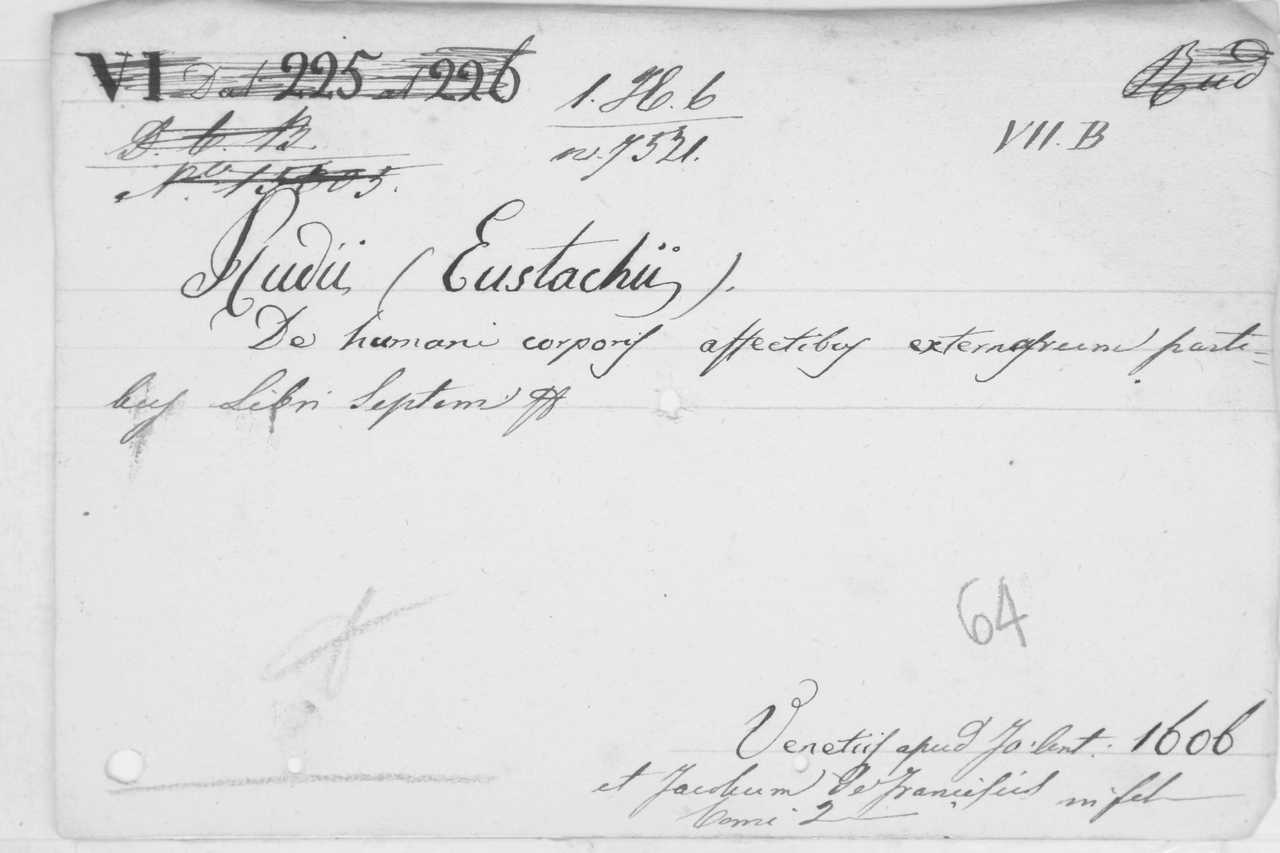 VI Dat 225 et 226
Rud
1. H. 6
D. 6. B.
VII. B
n. 7531.
Rudii (Eustachii).
De humani corporis affectibus externarum parti=
bus Libri Septem
64
Venetiis apud Jo: Ant: 1606
et Jacobum De Franciscis in fol
Tomi 2